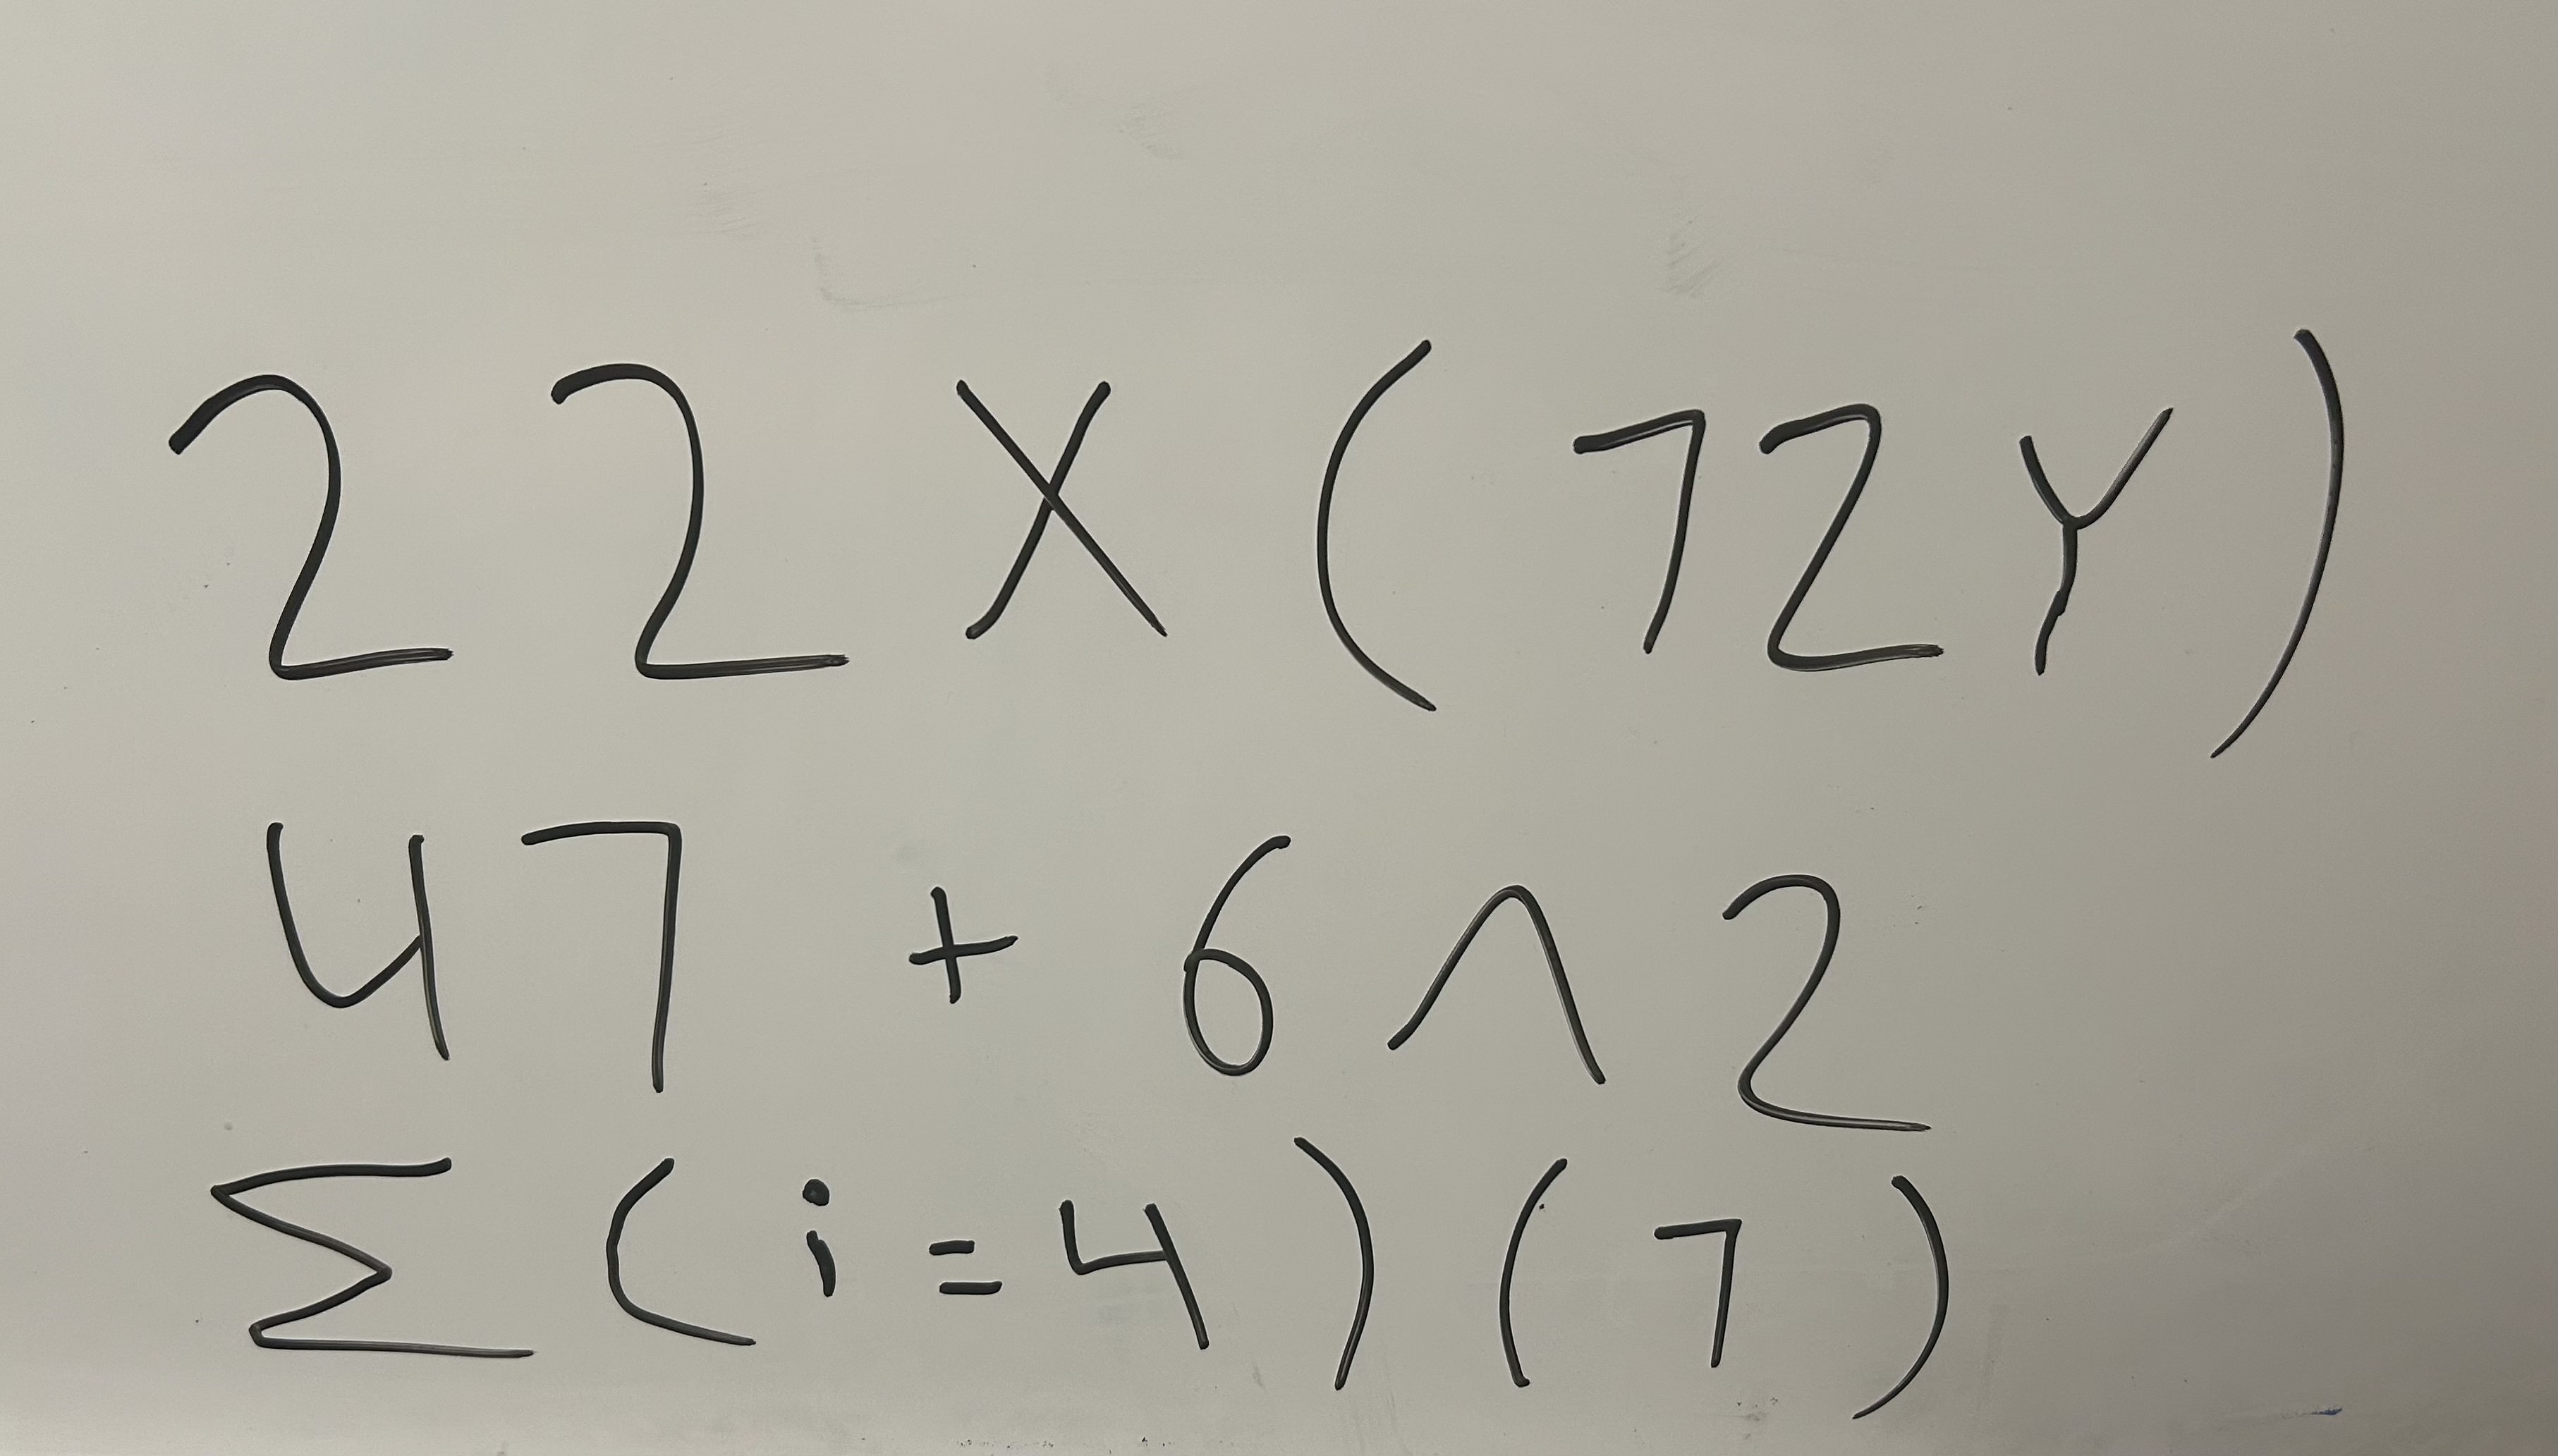 22X(72Y)
47 + 6^2
Σ(i=4)(7)